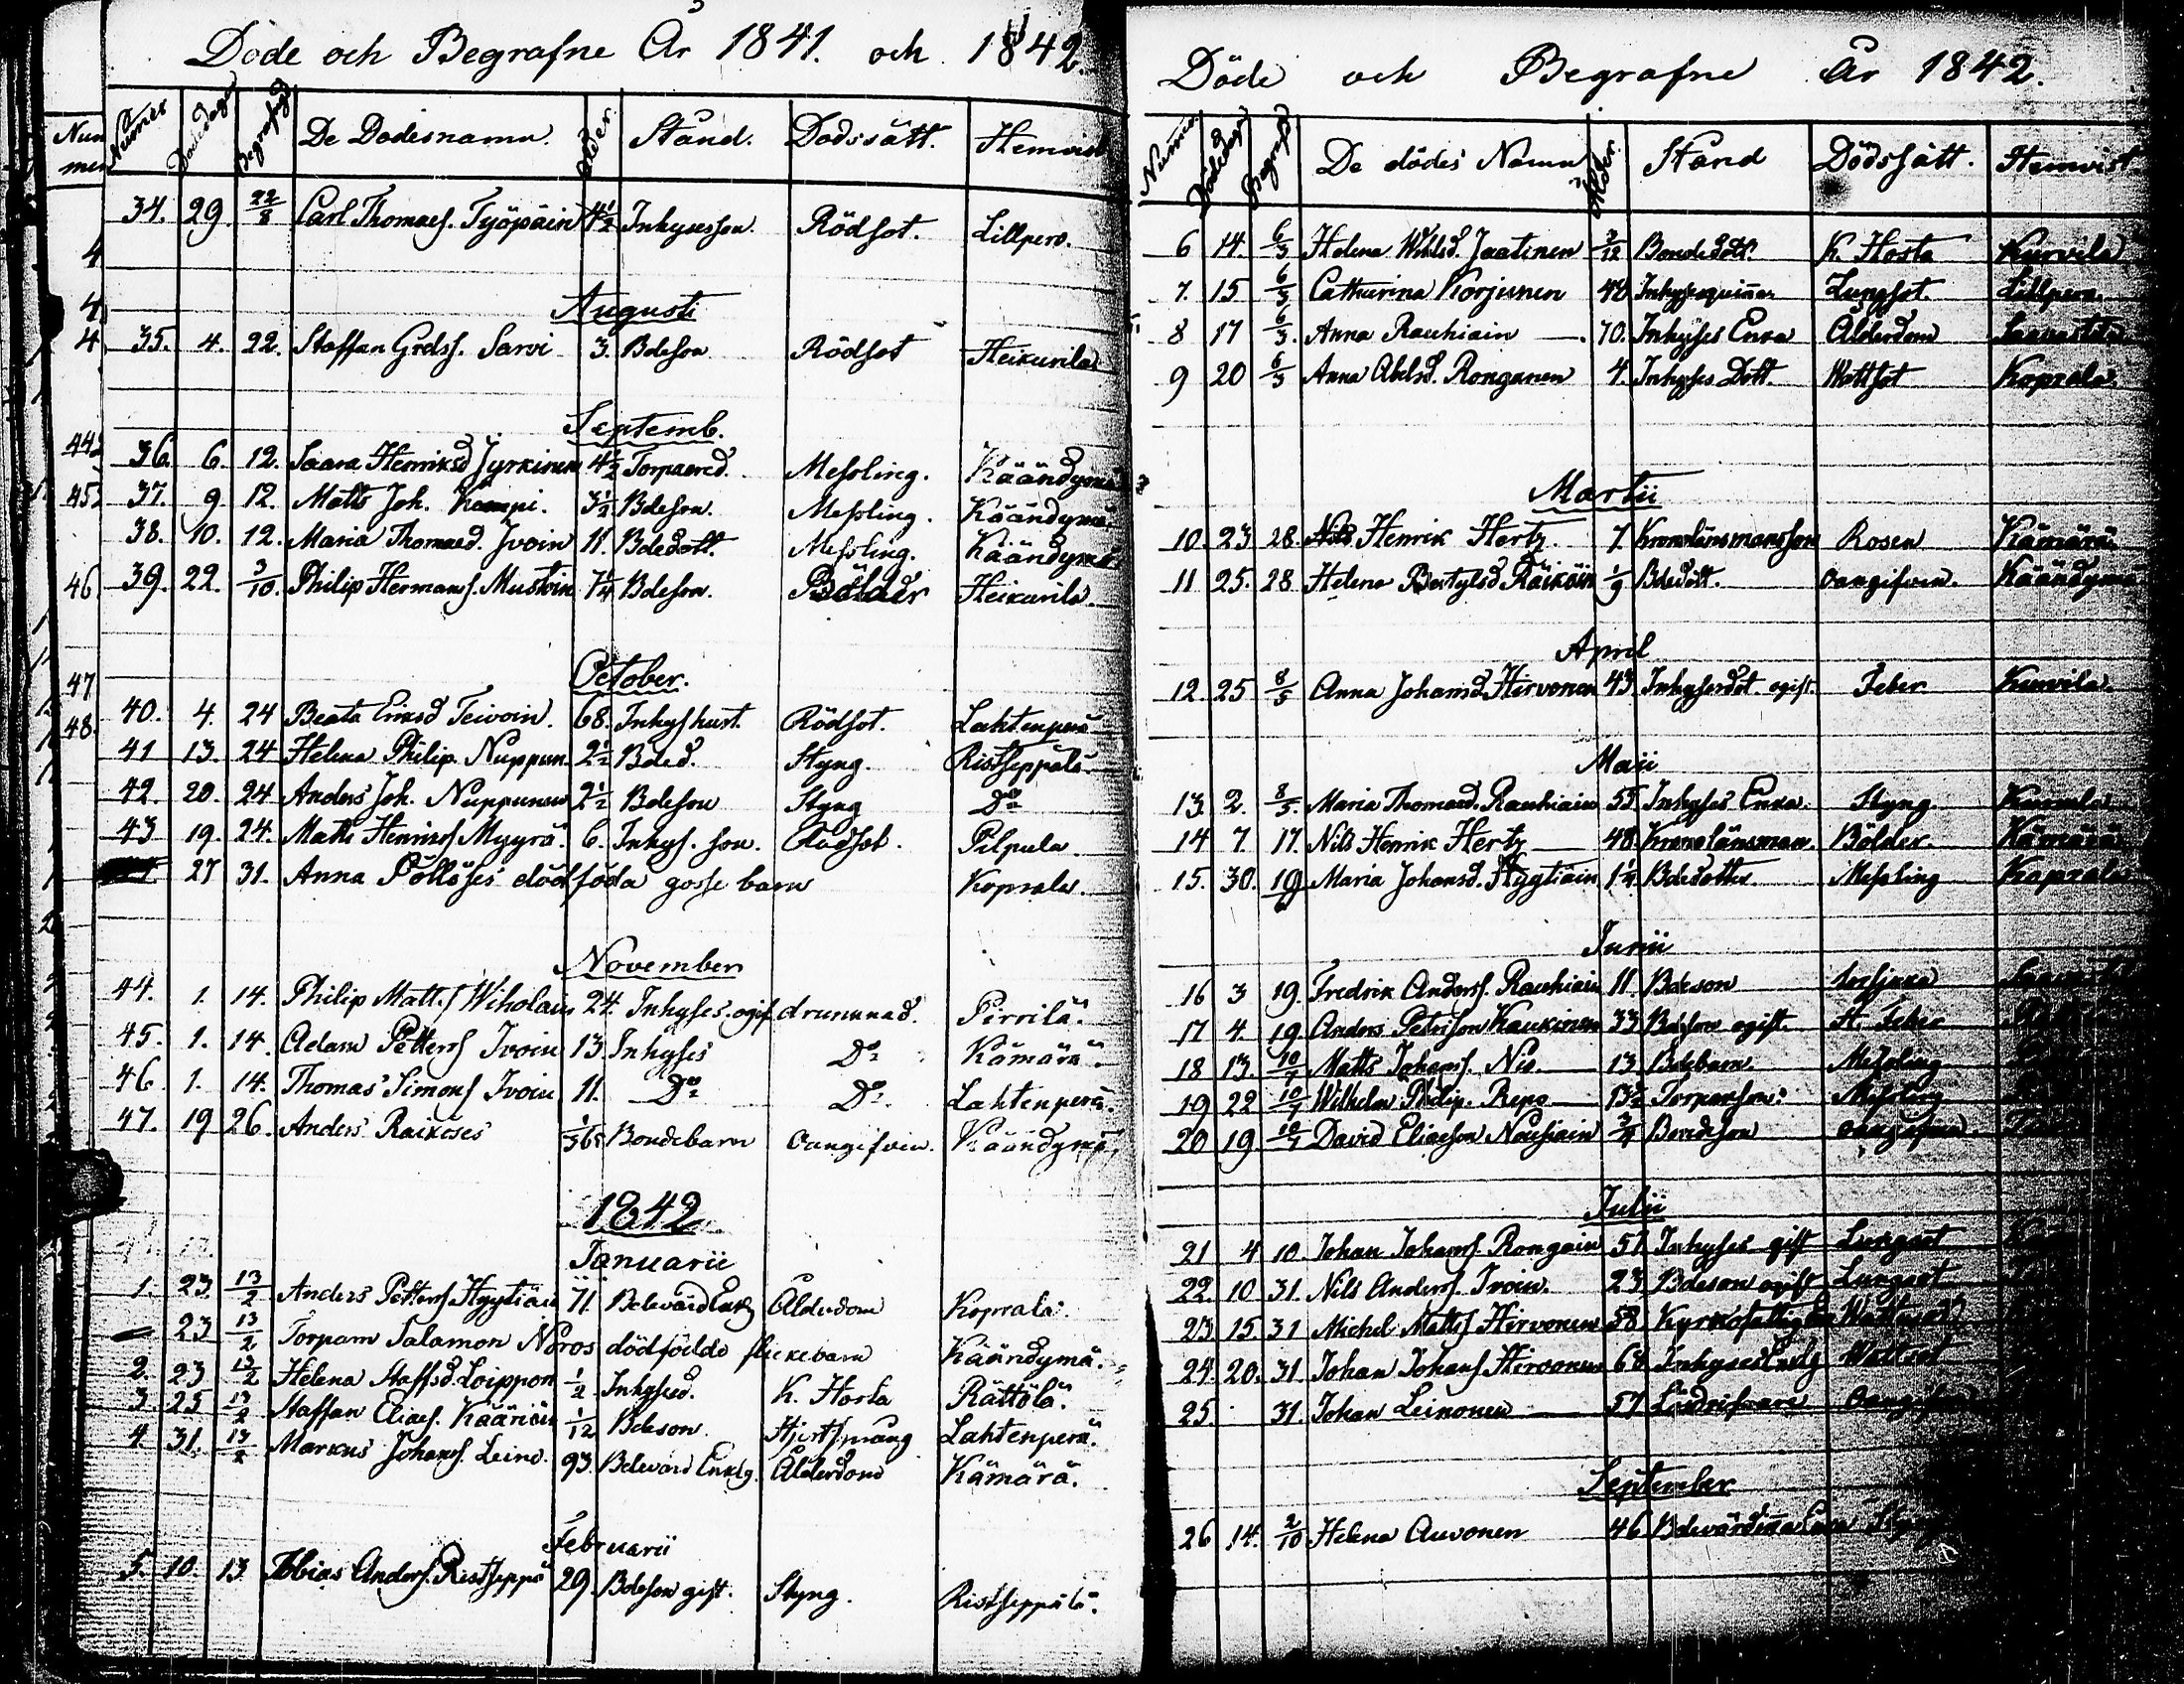 Döde och Begrafne År 1841. och 1842.
Numer Dödedagar Begrafngd De Dödesnamn. Ålder. Stånd. Dödssätt. Hemvist
34. 29. 22/8 Carl Thomass. Työpöin 4½ Inhysesson. Rödsot. Lillpero.
Augusti
35. 4. 22. Staffan Grelss. Sarvi 3. Bdeson Rödsot Heikurila
Septemb.
36. 6. 12. Saara Henriksd Jyrkinen 4½ Torpared. Messling. Kääändymä
37. 9. 12. Matts Joh. Kampi. 3½ Bdeson. Messling. Käändymä
38. 10. 12. Maria Thomasd. Ivoin 11. Bdedott. Messling. Käändymä
39. 22. 3/10. Philip Hermans. Mustoin 7¼ Bdeson. Bölder Heikurila.
October.
40. 4. 24 Beata Eriksd Teivoin. 68. Inhyshust. Rödsot. Lahtenperä
41 13. 24 Helena Philip. Nuppun. 2½ Bded. Styng. Ristseppälä
42. 20. 24 Anders Joh. Nuppunen 2½ Bdeson Styng Do
43 19. 24. Matts Henrikss Myyrä. 6. Inhys. son. Rödsot. Pilpula.
27 31. Anna Pöllöses dödföda gosse barn Koprala.
November
44. 1. 14. Philip Matts Wiholain 24. Inhyses. ogift drunknad. Pirrilä.
45. 1. 14. Adam Petterss Ivoin 13. Inhyses Do Kämärä
46. 1. 14. Thomas Simonss Ivoin 11. Do Do. Lahtenperä.
47. 19 26. Anders Raikeses Bondebarn Oangifven. Käändymä
1842
Januarii
1. 23. 13/2 Anders Petterss Hyytiäin 71. Bdevärd Enkg Ålderdom Koprala.
23 13/2 Torparn Salamon Noros dödfödde flickebarn Käändymä.
2. 23 13/2 Helena Staffsd. Loippon ½ Inhysed. K. Hosta Rättölä.
3 25 13/2 Staffan Elias. Kääriäin 1/12 Bdeson. Hjertsprång Lahtenperä.
4. 31. 13/2 Markus Johanss. Leino. 93. Bdevärd Enklg. Ålderdom Kämärä.
Februarii
5. 10. 13 Tobias Anderss. Ristseppä 29. Bdeson gift. Styng. Ristseppälä.
Döde och Begrafne År 1842.
Numro Dödedagar Begrafngd De dödes Namn Ålder. Stånd Dödssätt. Hemvist
6 14. 6/3 Helena Wilhsd. Jaatinen 3/12 Bondedott. K. Hosta Kurvila
7. 15 6/3 Catharina Korjunen 40 Inhysesqvinna Lungsot. Lillpero
8 17 6/3. Anna Rauhiain 70. Inhyses Enka Ålderdom
9 20 6/3 Anna Abelsd. Ronganen 4. Inhyses Dott. Wattsot Koprala
Martii
10. 23 28. Henrik Hertz. 7. Kronolänsmansson Rosen Kämärä
11 25. 28 Helena Bertylsd Räikköin 1/9 Bdedött. oangifven. Käändymä
April
12. 25 8/5 Anna Johansd Hirvonen 43. Inhysesdot. ogift. Feber Kurvila.
Maii
13. 2. 8/5. Maria Thomasd. Rauhiain 55 Inhyses Enka. Styng. Kurvila
14 7 17. Nils Henrik Hertz 48. Kronolänsman. Bölder. Kämärä
15. 30. 19/6 Maria Johansd. Hyytiäin 1¼ Bdedotter Messling Koprala
Junii
16 3 19. Fredrik Anderss. Rauhiain 11 Bdeson
17 4. 19. Anders Petterson Kaukinen 33 Bdeson ogift. H. Feber
18 13. 10/7 Matts Johanss. Nio 13 Bdebarn. Messling
19 22 10/7 Wilhelm Philip. Repo 13½ Torparson. Messling
20 19. 10/7 David Eliasson Nousiain ¾ Bondeson oangifven
Julii
21 4 10. Johan Johanss. Rongain 51 Inhyses gift Lungsot
22. 10 31. Nils Anderss. Ivoin. 23 Bdeson ogift Lungsot
23 15 31 Michel Matts Hirvonen 58 Kyrkofattig Wattusot
24. 20. 31. Johan Johans Hirvonen 68 Inhyses Enklg Wattsot
25. 31. Johan Leinonen 57 Oangifven
September
26 14. 2/10 Helena Auvonen 46 Bdevärdinna